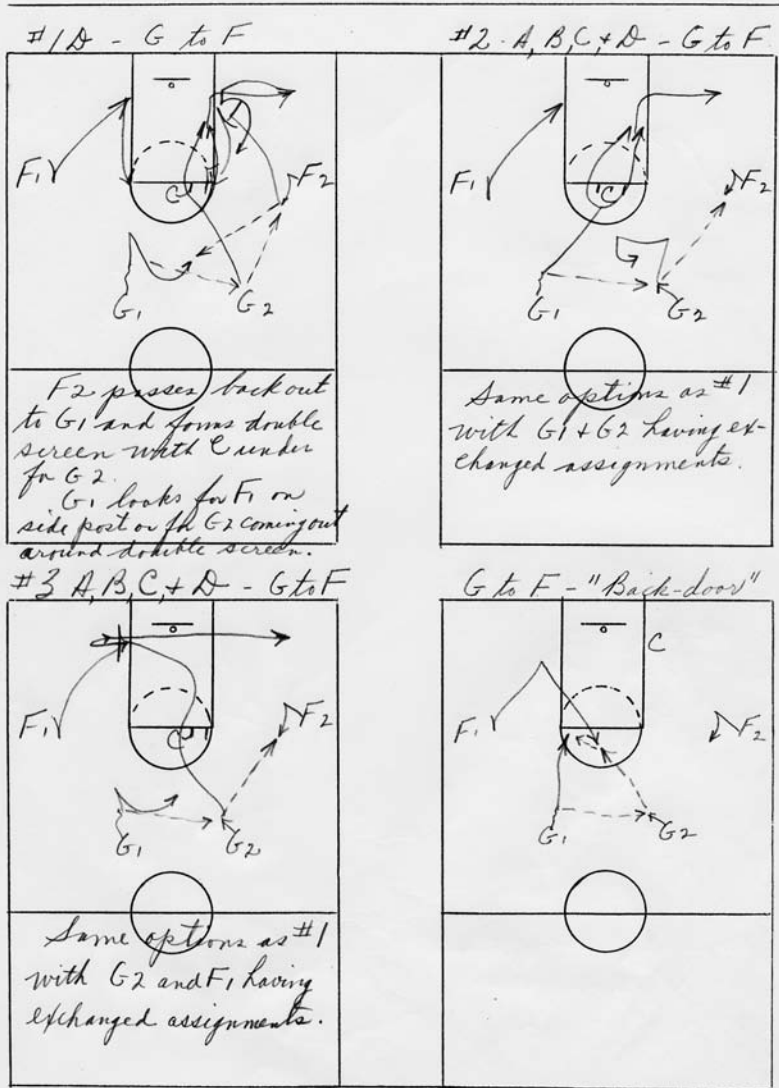 #1D - G to F
F1
F2
C
G1
G2
F2 passes back out
to G1 and forms double
screen with C under
for G2.
G1 looks for F1 on
side post or for G2 coming out
around double screen.
#2 - A, B, C, + D - G to F
F1
F2
C
G1
G2
Same options as #1
with G1 + G2 having ex-
changed assignments.
#3 A, B, C, + D - G to F
F1
F2
C
G1
G2
Same options as #1
with G2 and F1 having
exchanged assignments.
G to F - "Back-door"
C
F1
F2
G1
G2